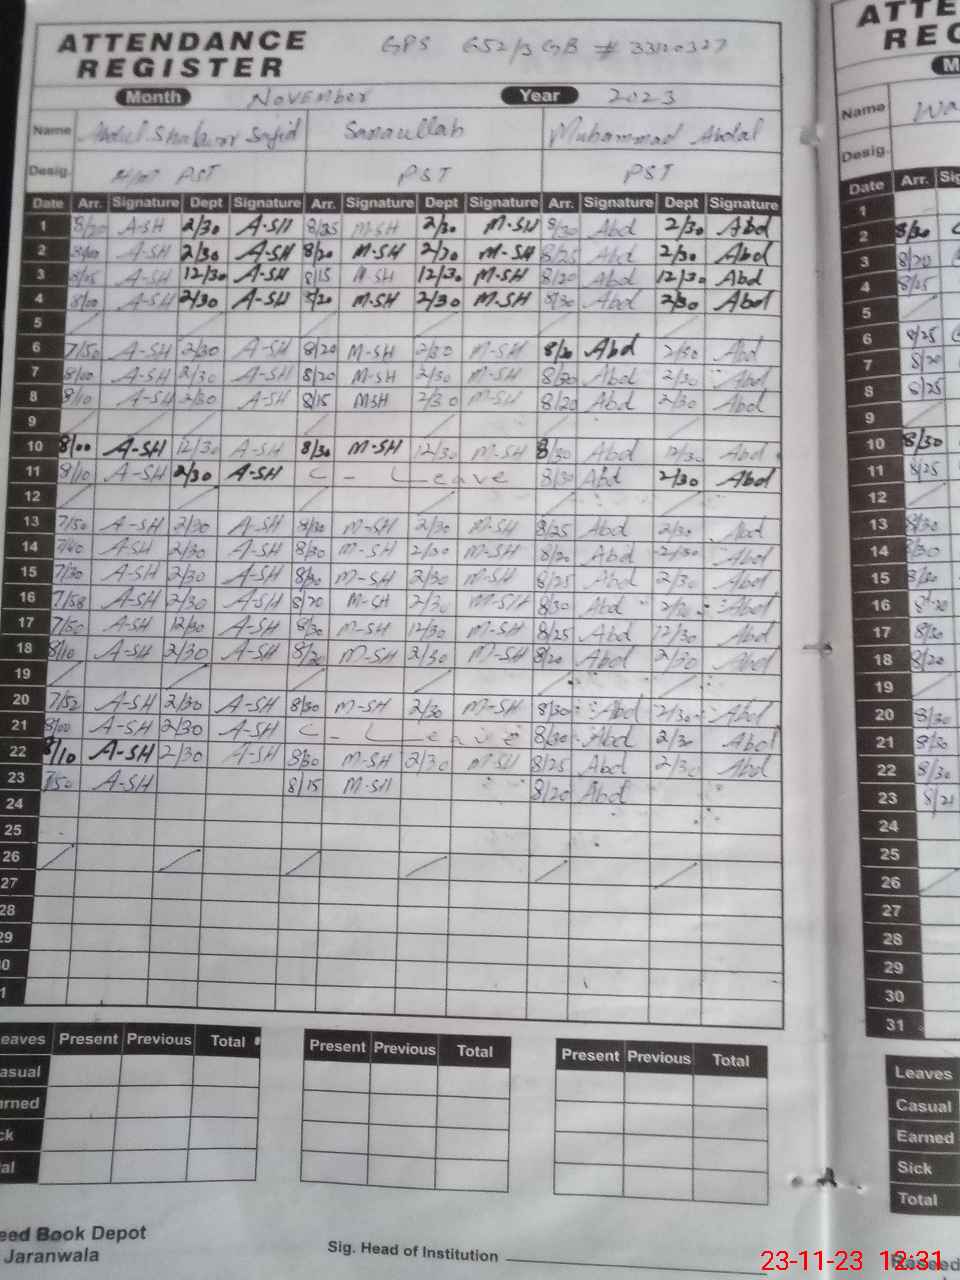 ATTENDANCE
REGISTER
GPS 652/3 GB # 33120327
Month November Year 2023
Name Abdul Shakoor Sajid Sanaullah Muhammad Abdal
Desig. PST PST PST
Date Arr. Signature Dept Signature Arr. Signature Dept Signature Arr. Signature Dept Signature
1 8/20 A-SH 2/30 A-SH 8/25 M-SH 2/30 M-SH 8/30 Abd 2/30 Abd
2 8/00 A-SH 2/30 A-SH 8/20 M-SH 2/30 M-SH 8/25 Abd 2/30 Abd
3 A-SH 12/30 A-SH 8/15 M-SH 12/30 M-SH 8/20 Abd 12/30 Abd
4 8/00 A-SH 2/30 A-SH 8/20 M-SH 2/30 M-SH 8/30 Abd 2/30 Abd
5
6 7/50 A-SH 2/30 A-SH 8/20 M-SH 2/30 M-SH 8/20 Abd 2/30 Abd
7 8/00 A-SH 2/30 A-SH 8/20 M-SH 2/30 M-SH 8/30 Abd 2/30 Abd
8 8/10 A-SH 2/30 A-SH 8/15 M-SH 2/30 M-SH 8/20 Abd 2/30 Abd
9
10 8/00 A-SH 12/30 A-SH 8/30 M-SH 12/30 M-SH 8/30 Abd 12/30 Abd
11 8/10 A-SH 2/30 A-SH C - Leave 8/30 Abd 2/30 Abd
12
13 7/50 A-SH 2/30 A-SH M-SH 2/30 M-SH 8/25 Abd 2/30 Abd
14 7/40 A-SH 2/30 A-SH 8/30 M-SH 2/30 M-SH 8/20 Abd 2/30 Abd
15 7/30 A-SH 2/30 A-SH 8/30 M-SH 2/30 M-SH 8/25 Abd 2/30 Abd
16 7/58 A-SH 2/30 A-SH 8/20 M-SH 2/30 M-SH 8/30 Abd Abd
17 7/50 A-SH 12/30 A-SH 8/30 M-SH 12/30 M-SH 8/25 Abd 12/30 Abd
18 8/10 A-SH 2/30 A-SH M-SH 2/30 M-SH 8/20 Abd 2/30 Abd
19
20 7/52 A-SH 2/30 A-SH 8/30 M-SH 2/30 M-SH 8/30 Abd 2/30 Abd
21 8/00 A-SH 2/30 A-SH C - Leave 8/30 Abd 2/30 Abd
22 8/10 A-SH 2/30 A-SH 8/30 M-SH 2/30 M-SH 8/25 Abd 2/30 Abd
23 7/50 A-SH 8/15 M-SH 8/20 Abd
24
25
26
27
28
29
0
1
eaves Present Previous Total Present Previous Total Present Previous Total
asual
rned
ck
al
eed Book Depot
Jaranwala
Sig. Head of Institution
ATTE
REG
M
Name Wa
Desig.
Date Arr. Sig
1
2 8/30
3 8/20
4 8/25
5
6 8/25
7 8/20
8 8/25
9
10 8/30
11 8/25
12
13 8/30
14 8/30
15
16 8-20
17 8/30
18 8/20
19
20 8/30
21 8/30
22 8/30
23 8/21
24
25
26
27
28
29
30
31
Leaves
Casual
Earned
Sick
Total
23-11-23 12:31